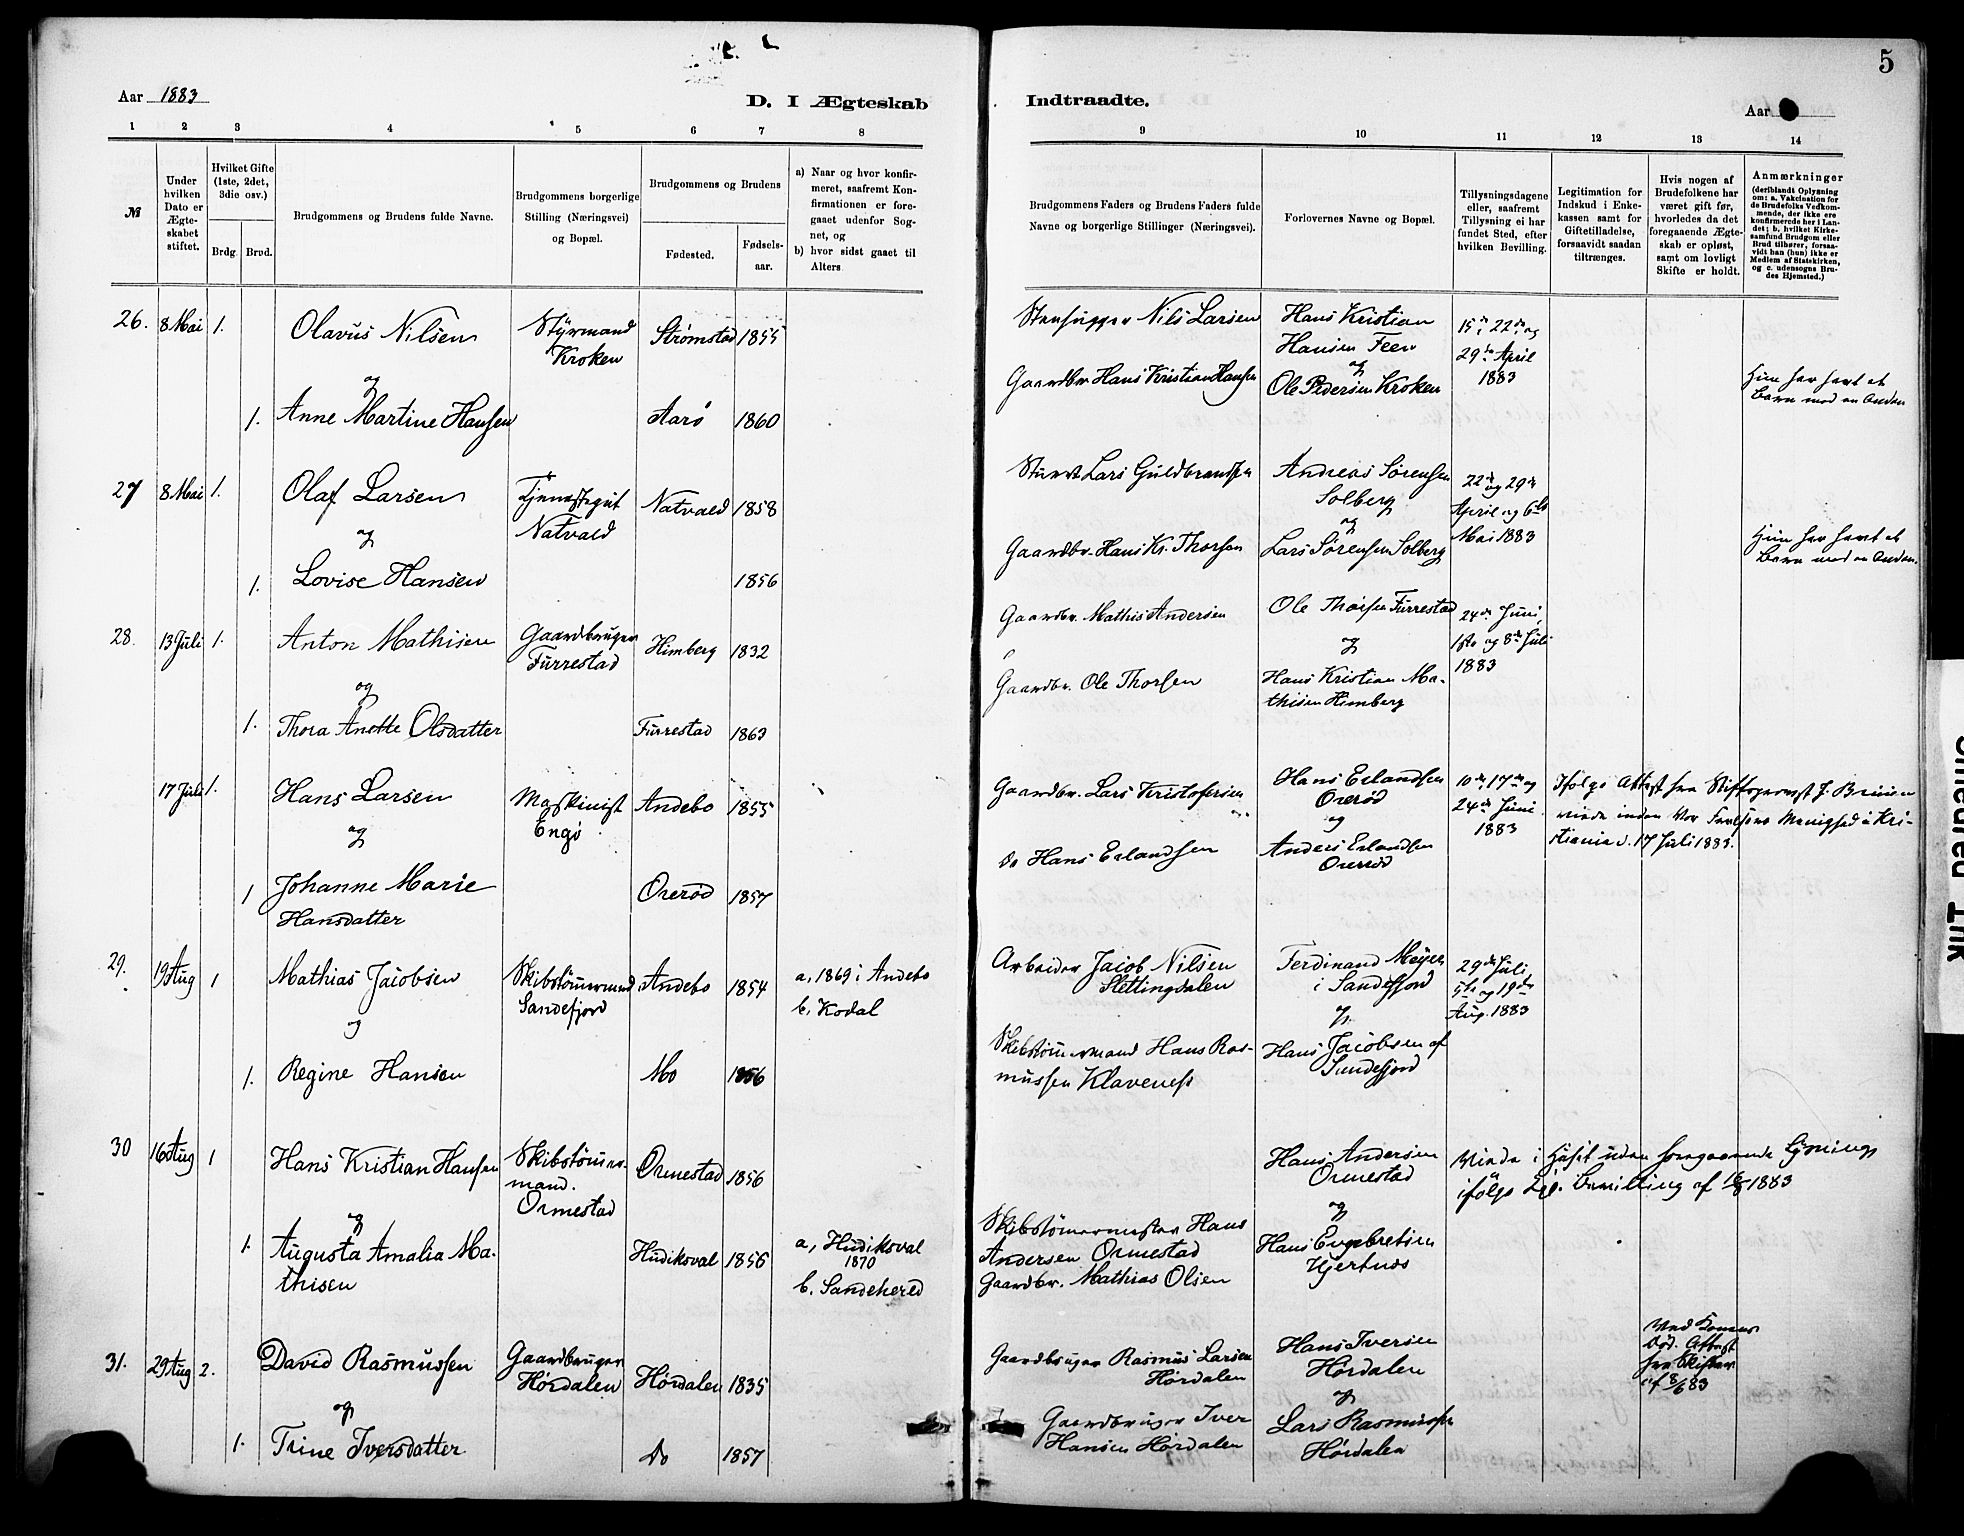 5
Aar 1883
D. I Ægteskab
Indtraadte.
Aar
1 2 3 4 5 6 7 8
9 10 11 12 13 14
№
Under
hvilken
Dato er
Ægte-
skabet
stiftet.
Hvilket Gifte
(1ste, 2det,
3die osv.)
Brdg. Brud.
Brudgommens og Brudens fulde Navne.
Brudgommens borgerlige
Stilling (Næringsvei)
og Bopæl.
Brudgommens og Brudens
Fødested.
Fødsels-
aar.
a) Naar og hvor konfir-
meret, saafremt Kon-
firmationen er fore-
gaaet udenfor Sog-
net, og
b) hvor sidst gaaet til
Alters
Brudgommens Faders og Brudens Faders fulde
Navne og borgerlige Stillinger (Næringsvei).
Forlovernes Navne og Bopæl.
Tillysningsdagene
eller, saafremt
Tillysning ei har
fundet Sted, efter
hvilken Bevilling.
Legitimation for
Indskud i Enke-
kassen samt for
Giftetilladelse,
forsaavidt saadan
tiltrænges.
Hvis nogen af
Brudefolkene har
været gift før,
hvorledes da det
foregaaende Ægte-
skab er opløst,
samt om lovligt
Skifte er holdt.
Anmærkninger
(deriblandt Oplysning
om: a. Vakcination for
de Brudefolks Vedkom-
mende, der ikke ere
konfirmerede her i Lan-
det; b. hvilket Kirke-
samfund Brudgom eller
Brud tilhører, forsaa-
vidt han (hun) ikke er
Medlem af Statskirken,
og c. udensogns Bru-
des Hjemsted.)
26. 8 Mai 1.
Olavus Nilsen
og
1. Anne Martine Hansen
Styrmand
Kroken
Strømstad 1855
Aarø 1860
Stenhugger Nils Larsen
Gaardbr. Hans Kristian Hansen
Hans Kristian
Hansen Feen
og
Ole Pedersen Kroken
15de, 22de og
29de April
1883
Hun har havt et
Barn med en Anden
27 8 Mai 1.
Olaf Larsen
og
1. Lovise Hansen
Tjenestegut
Natvald
Natvald 1858
1856
Lars Guldbrandsen
Gaardbr. Hans Kr. Thorsen
Andreas Sørensen
Solberg
og
Lars Sørensen Solberg
22de og 29de
April og 6te
Mai 1883
Hun har havt et
Barn med en Anden.
28. 13 Juli 1.
Anton Mathisen
og
1. Thora Anette Olsdatter
Gaardbruger
Furrestad
Himberg 1832
Furrestad 1863
Gaardbr. Mathis Andersen
Gaardbr. Ole Thorsen
Ole Thorsen Furrestad
og
Hans Kristian Ma-
thisen Himberg
24de Juni,
1ste og 8de Juli
1883
17 Juli 1.
Hans Larsen
og
1 Johanne Marie
Hansdatter
Maskinist
Engø
Andebo 1855
Orerød 1857
Gaardbr. Lars Kristofersen
Do Hans Erlandsen
Hans Erlandsen
Orerød
og
Anders Erlandsen
Orerød
10de, 17de og
24de Juni
1883
Ifølge Attest fra Stiftsprovst J. Bruun
viede inden Vor Frelsers Menighed i Kri-
stiania d. 17 Juli 1883.
29. 19 Aug 1
Mathias Jacobsen
og
1. Regine Hansen
Skibstømmermand
Sandefjord
Andebo 1854
Mo 1856
a, 1869 i Andebo
b. Kodal
Arbeider Jacob Nilsen
Slettingdalen
Skibstømmermand Hans Ras-
mussen Klaveness
Ferdinand Meyer
i Sandefjord
og
Hans Jacobsen af
Sandefjord
29de Juli
5te og 19de
Aug. 1883
30 16 Aug 1
Hans Kristian Hansen
og
1. Augusta Amalia Ma-
thisen
Skibstømmer-
mand.
Ormestad
Ormestad 1856
Hudiksval 1856
a, Hudiksval
1870
b. Sandehered
Skibstømmermester Hans
Andersen Ormestad
Gaardbr. Mathias Olsen
Hans Andersen
Ormestad
og
Hans Engebretsen
Hjertnes
Viede i Huset uden foregaaende Lysning
ifølge Kgl. Bevilling af 16/8 1883
31. 29 Aug 2.
David Rasmussen
og
1. Trine Iversdatter
Gaardbruger
Hørdalen
Hørdalen 1835
Do 1857
Gaardbruger Rasmus Larsen
Hørdalen
Gaardbruger Iver
Hansen Hørdalen
Hans Iversen
Hørdalen
og
Lars Rasmussen
Hørdalen
Ved Konens
Død. Attest
fra Skifter.
af 8/6 83